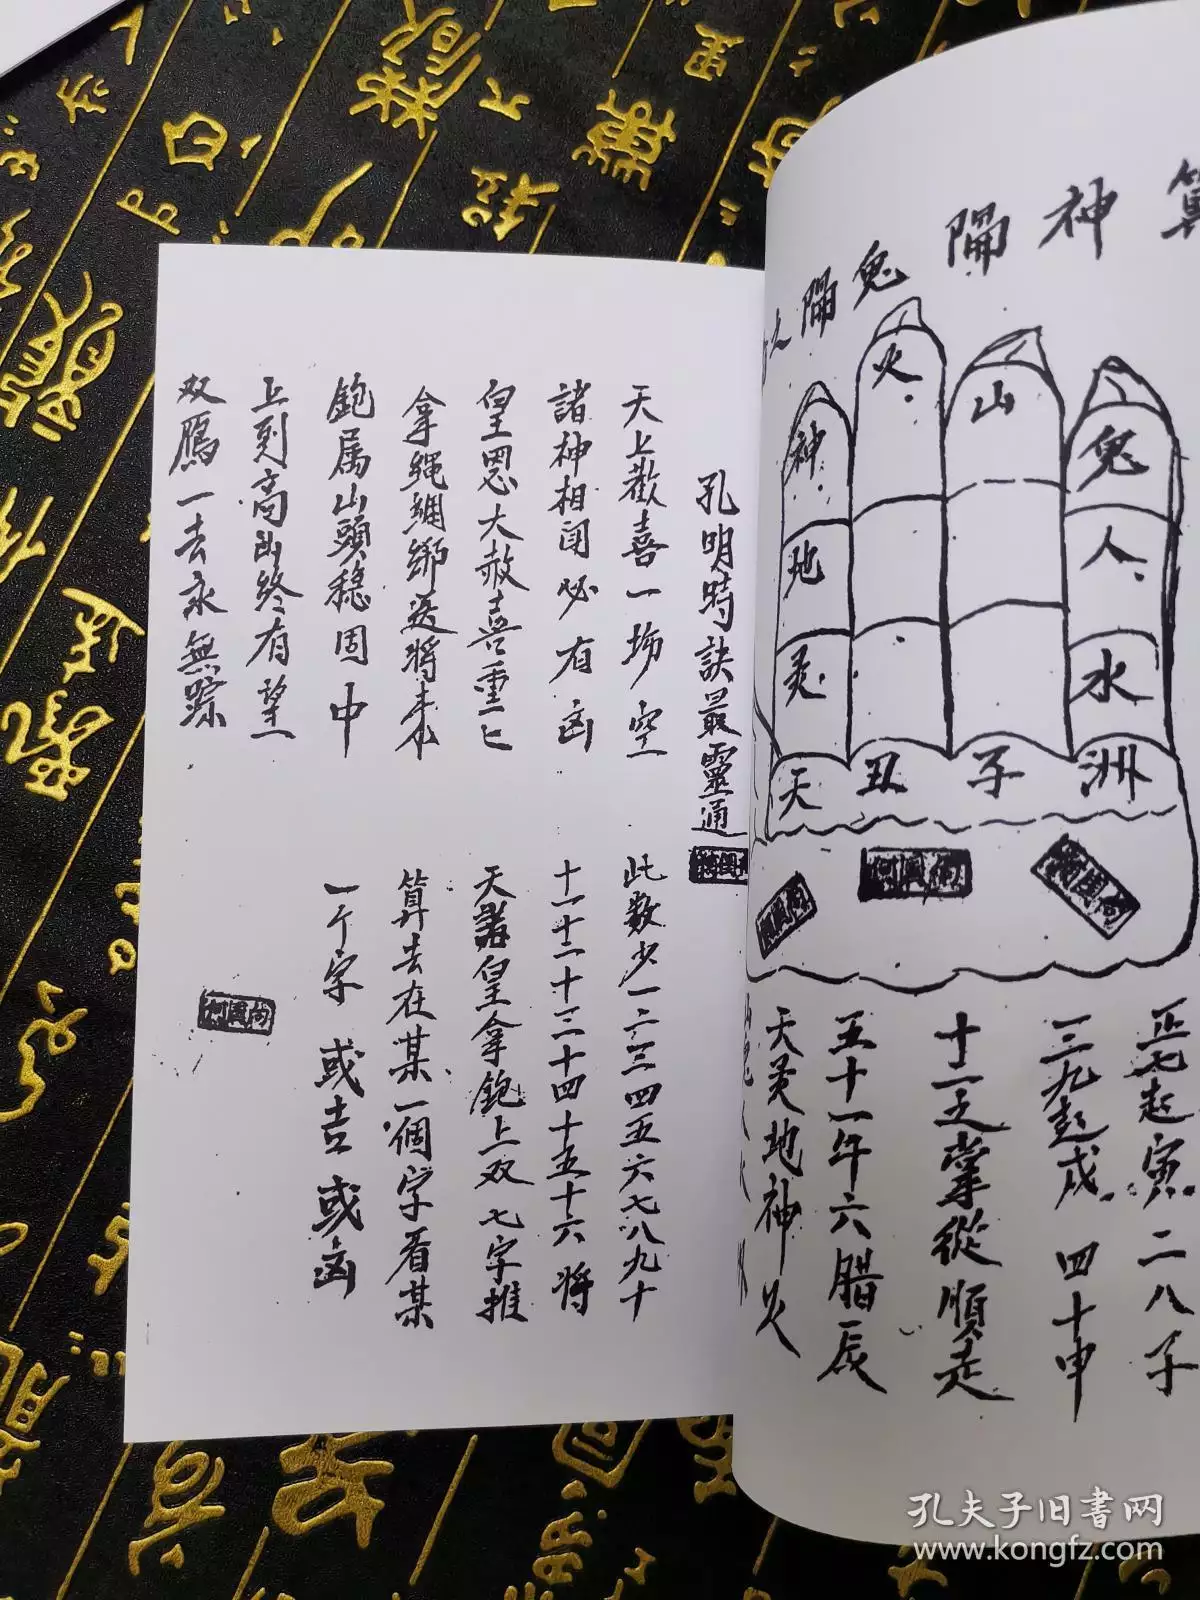 神
鬼
火
山
鬼
神
人
地
水
灵
天
丑
子
洲
正七起寅二八子
三九起戌四十申
十二之掌從順走
五十一午六腊辰
天灵地神火
孔明時訣最靈通
天上歡喜一場空
諸神相闭必有凶
皇恩大赦喜重七
拿绳綑绑送將来
鲍属山頭穏固中
上到高山終有望
双鴈一去永無踪
此数少一二三四五六七八九十
十一十二十三十四十五十六將
天諸皇拿鲍上双七字推
算去在某一個字看某
一个字或吉或凶
孔夫子旧书网
www.kongfz.com